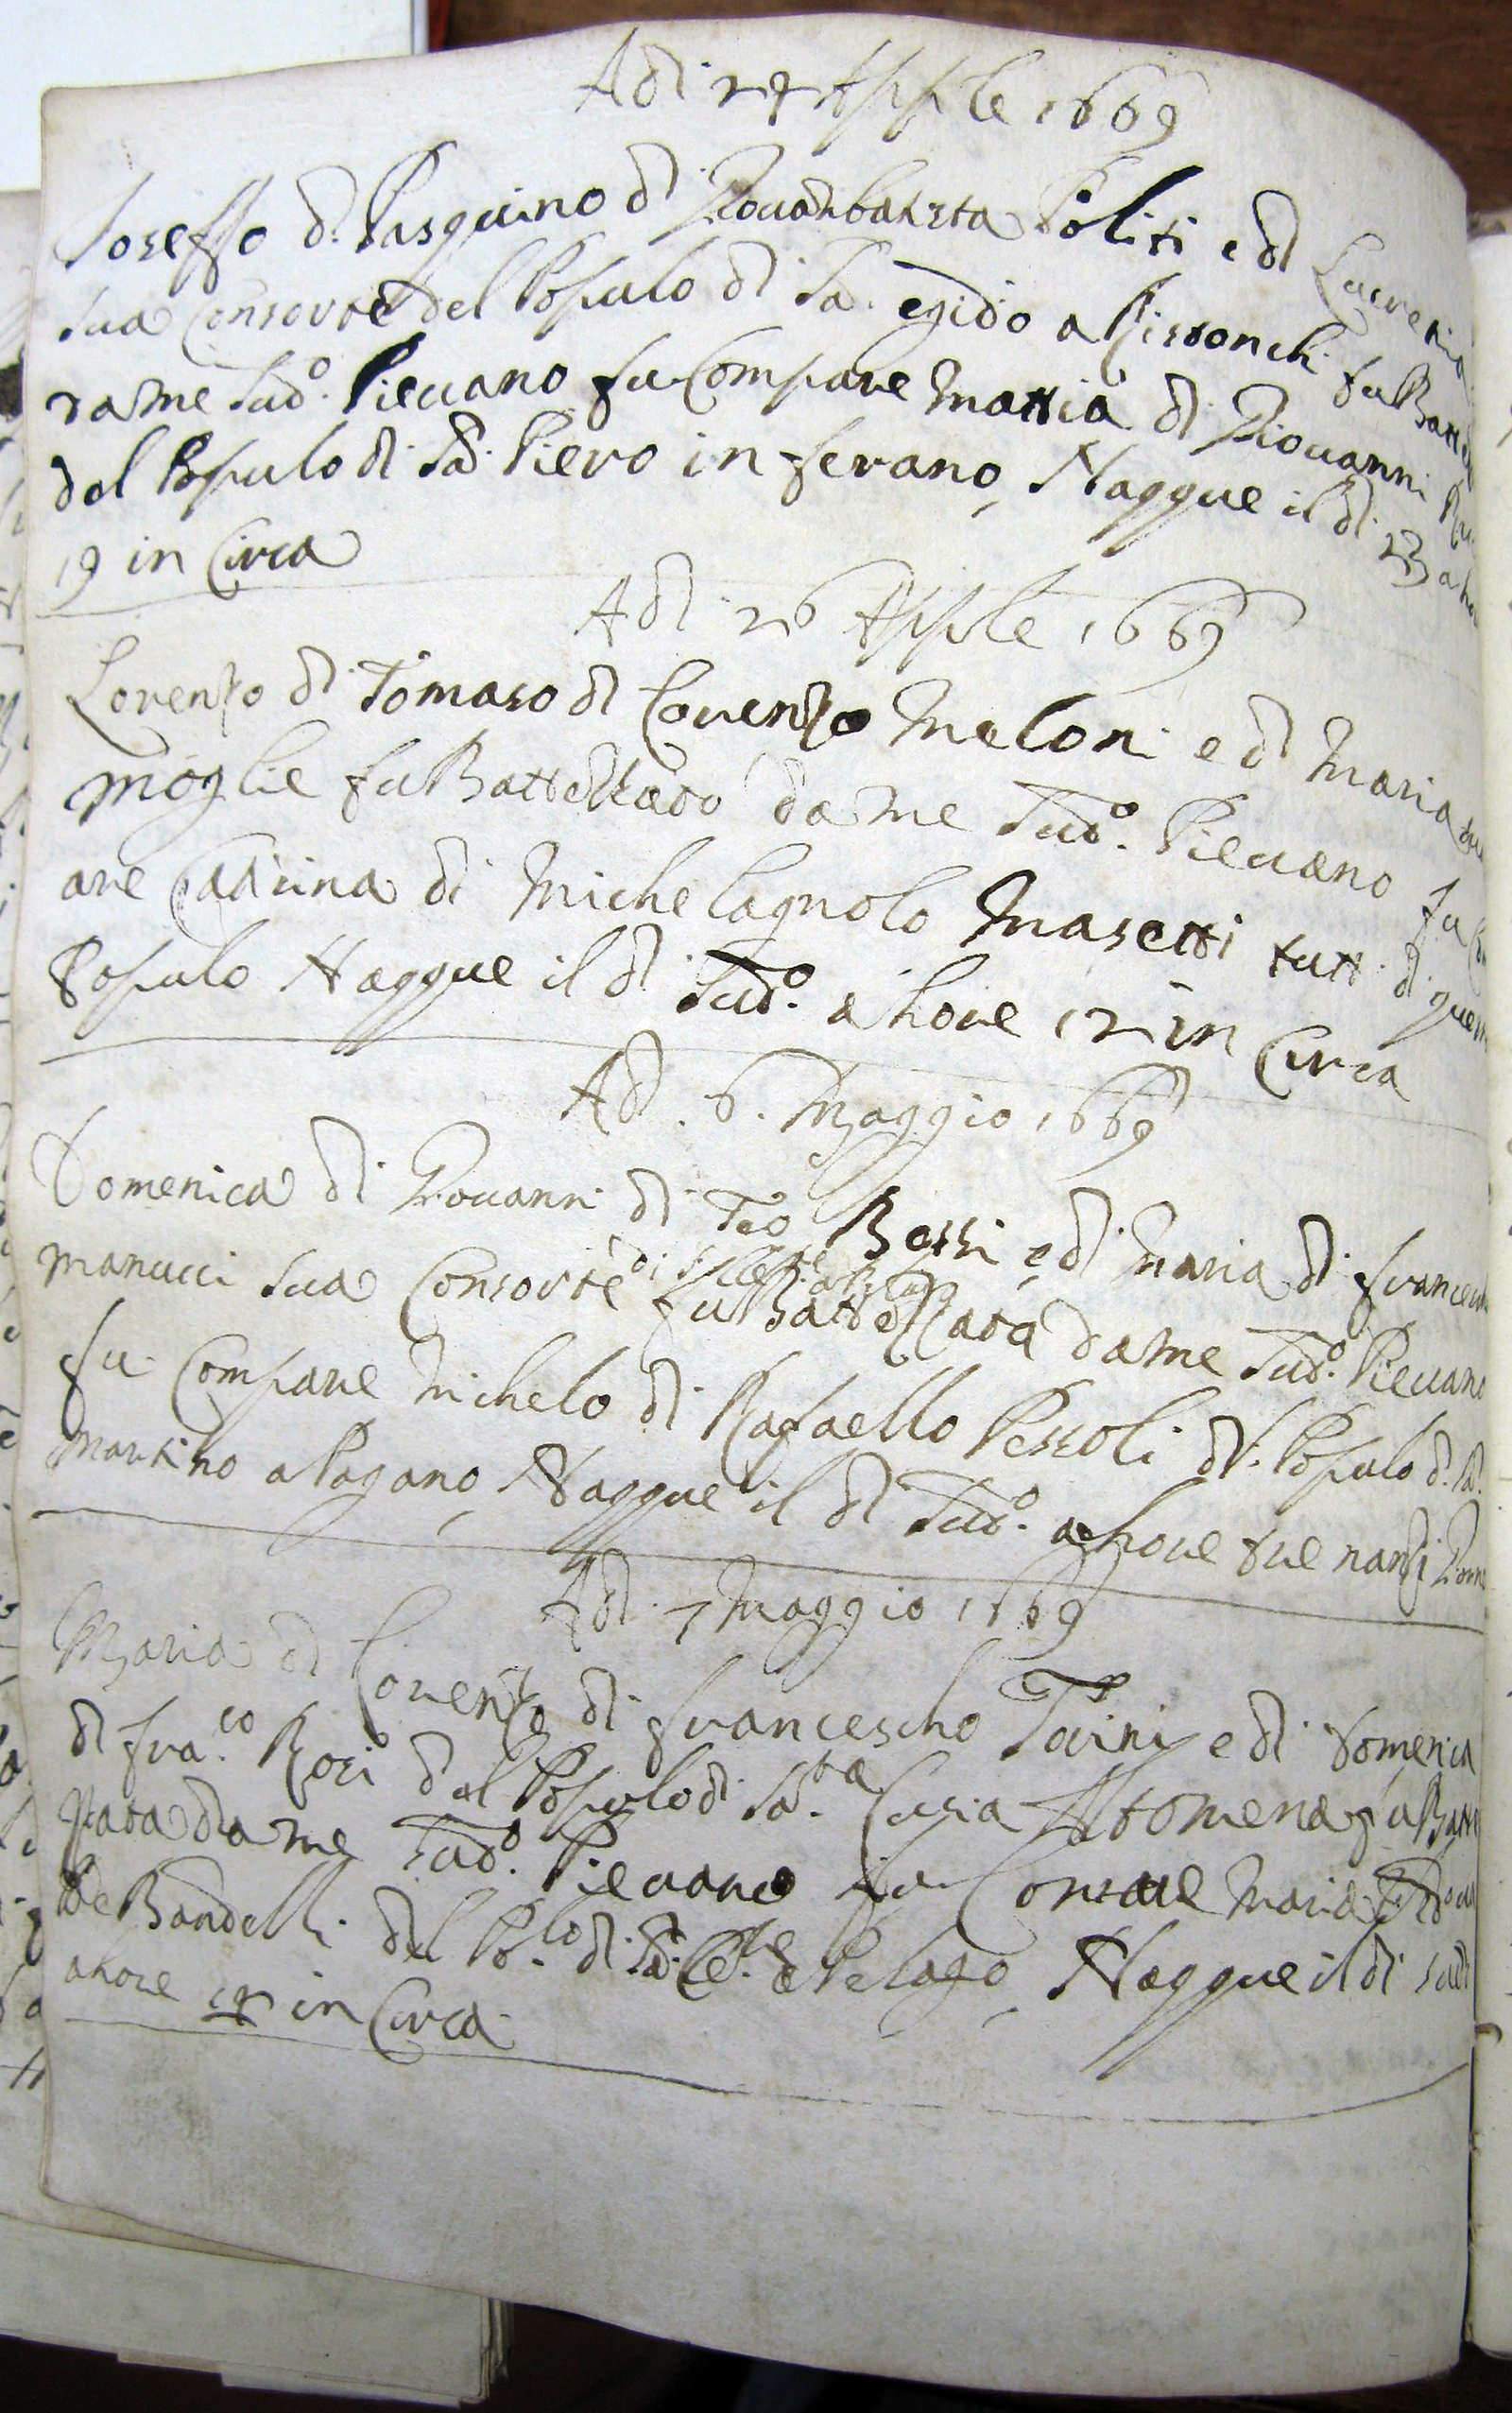 Adi 24 Aprile 1669
Joseffo di Pasquino di Giouanbatista Politi e di Lucretia
sua Consorte del Populo di Sa. egidio a Rissonchi fu Batte
da me Sud.o Pieuano fu Compare Mattia di Giouanni
del Populo di Sa. Piero in ferano, Nacque il di 23 a ho
19 in Circa
Adi 26 Aprile 1669
Lorenzo di Tomaso di Lorenzo Meloni e di Maria sua
moglie fu Battezzato da me Sud.o Pieuano fu Com
are Catirina di Michelagnolo Masetti tutti di questo
Populo Nacque il di Sud.o a hore 12 in Circa
Adi 6. Maggio 1669
Domenica di Giouanni di Teo Bessi e di Maria di francescho
Manucci sua Consorte fu Battezzata da me Sud.o Pieuano
fu Compare Michelo di Rafaello Pessoli dl. Populo di Sa.
Martino a Pagano, Nacque il di Sud.o a hore tre nanzi Giorno
Adi 7 Maggio 1669
Maria di Lorenzo di francescho Tarini e di Domenica
di fra.co Rosi dal Populo di Sa.ta Lucia Altomena fu Batte
zzata da me Sud.o Pieuano fu Comare Maria
Bandelli del Po.lo di Sa. Cle.te a Pelago, Nacque il di sud
a hore 12 in Circa